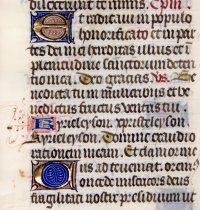 diuertent et nimis. Cpm
Et radicaui in populo
honorificato et in par
tes dei mei hereditas illius et i
plenitudine sanctorum deten
tio mea. Deo gracias. vs. Be
nedicta tu in mulieribus et be
nedictus fructus ventris tui.
Kyrieleyson. xpisteleyson
kyrieleyson. Domine exaudi o
rationem meam. Et clamor me
us ad te ueniat. oremus.
Concede misericors deus
fragilitati nostre presidium ut